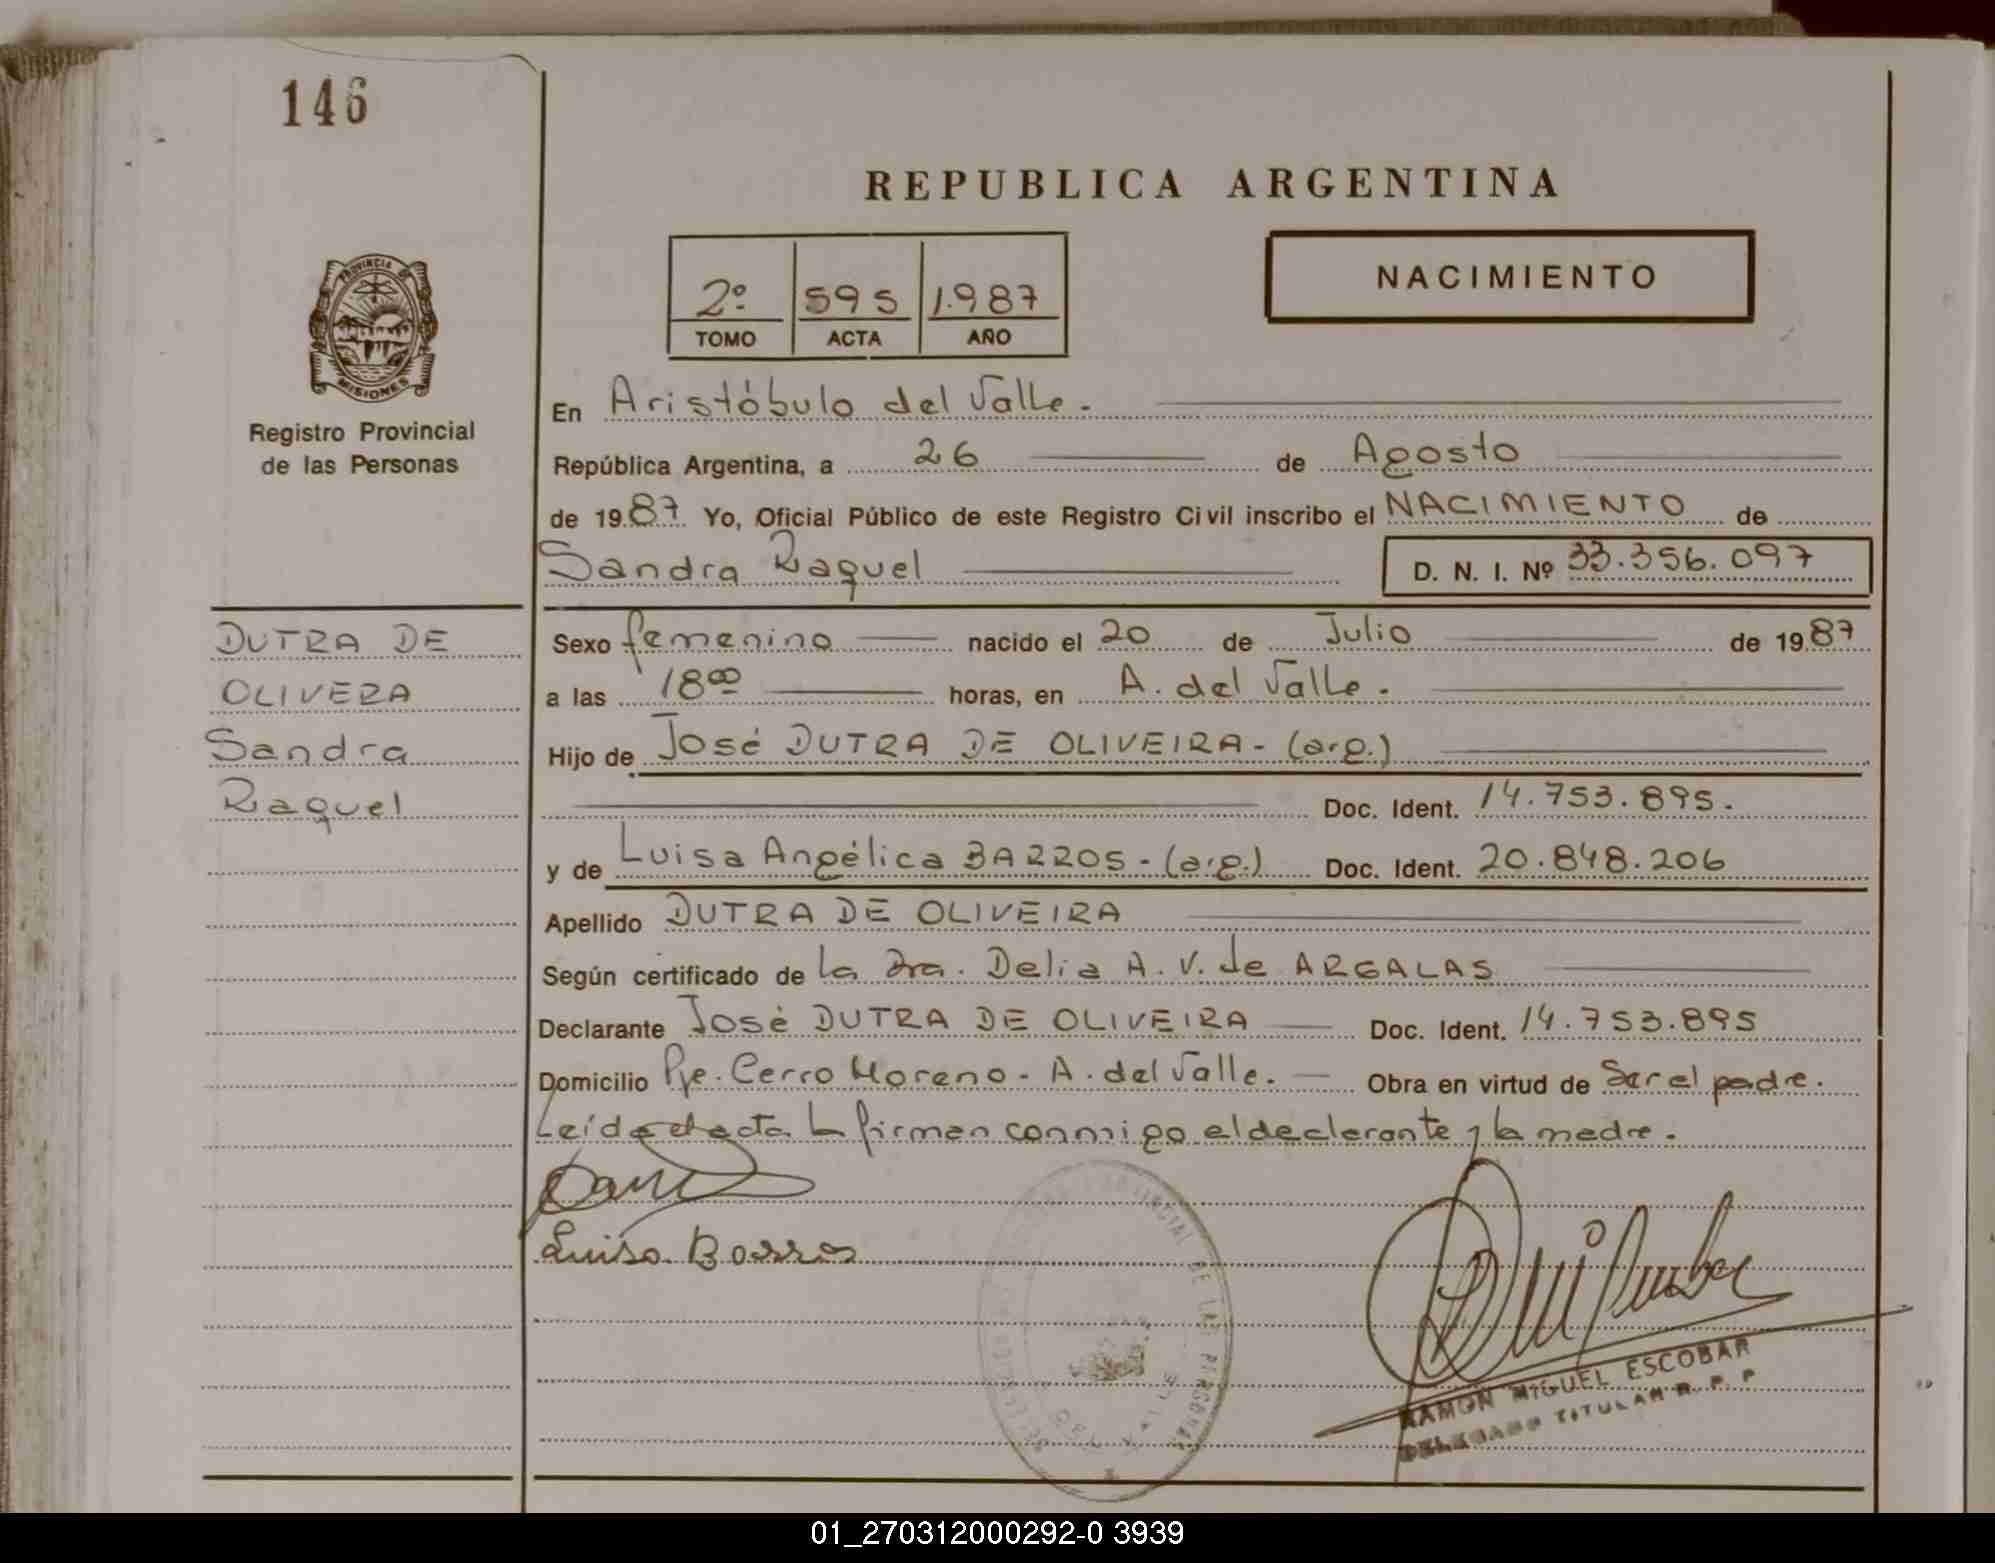 146
REPUBLICA ARGENTINA
PROVINCIA DE
MISIONES
2º 595 1.987
TOMO ACTA AÑO
NACIMIENTO
Registro Provincial
de las Personas
En Aristóbulo del Valle.
República Argentina, a 26 de Agosto
de 1987 Yo, Oficial Público de este Registro Civil inscribo el NACIMIENTO de
Sandra Raquel D. N. I. Nº 33.356.097
DUTRA DE
OLIVERA
Sandra
Raquel
Sexo femenino nacido el 20 de Julio de 1987
a las 18⁰⁰ horas, en A. del Valle.
Hijo de José DUTRA DE OLIVEIRA - (arg.)
Doc. Ident. 14.753.895.
y de Luisa Angélica BARROS - (arg.) Doc. Ident. 20.848.206
Apellido DUTRA DE OLIVEIRA
Según certificado de la Dra. Delia A. V. de ARGALAS
Declarante José DUTRA DE OLIVEIRA Doc. Ident. 14.753.895
Domicilio Pje. Cerro Moreno - A. del Valle. Obra en virtud de Ser el padre.
Leída el acta la firman conmigo el declarante y la madre.
Luisa Barros
PROVINCIAL DE LAS PERSONAS
RAMON MIGUEL ESCOBAR
DELEGADO TITULAR R. P. P.
01_270312000292-0 3939